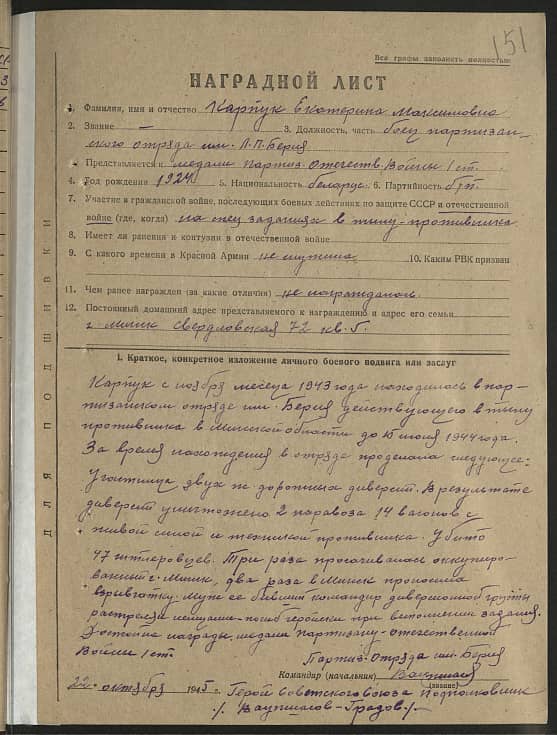 151
Все графы заполнять полностью
НАГРАДНОЙ ЛИСТ
1. Фамилия, имя и отчество Карпук Екатерина Максимовна
2. Звание — 3. Должность, часть боец партизан-
ского отряда им. Л.П. Берия
Представляется к медали Партиз. Отечеств. Войны 1 ст.
4. Год рождения 1924 5. Национальность беларус. 6. Партийность б/п.
7. Участие в гражданской войне, последующих боевых действиях по защите СССР и отечественной
войне (где, когда) на спец заданиях в тылу противника
8. Имеет ли ранения и контузии в отечественной войне
9. С какого времени в Красной Армии не служила 10. Каким РВК призван
11. Чем ранее награжден (за какие отличия) не награждалась.
12. Постоянный домашний адрес представляемого к награждению и адрес его семьи
г. Минск Свердловская 72 кв. 5.
ДЛЯ ПОДШИВКИ
I. Краткое, конкретное изложение личного боевого подвига или заслуг
Карпук с ноября месеца 1943 года находилась в пар-
тизанском отряде им. Берия действующего в тылу
противника в Минской области до 10 июля 1944 года.
За время нахождения в отряде проделала следующее:
Участница двух ж дорожных диверсий. В результате
диверсий уничтожено 2 паравоза 14 вагонов с
живой силой и техникой противника. Убито
47 гитлеровцев. Три раза
г. Минск, два раза в Минск проносила
взрывчатку. Муж ее бывший командир диверсионной группы
растрелян немцами - погиб геройски при выполнении задания.
Достойна награды медали партизану - отечественной
Войны 1 ст.
Партиз. Отряда им. Берия
Командир (начальник) Ваупшасов
(звание)
22 октября 1945 г. Герой Советского Союза Подполковник
/ Ваупшасов - Градов /.